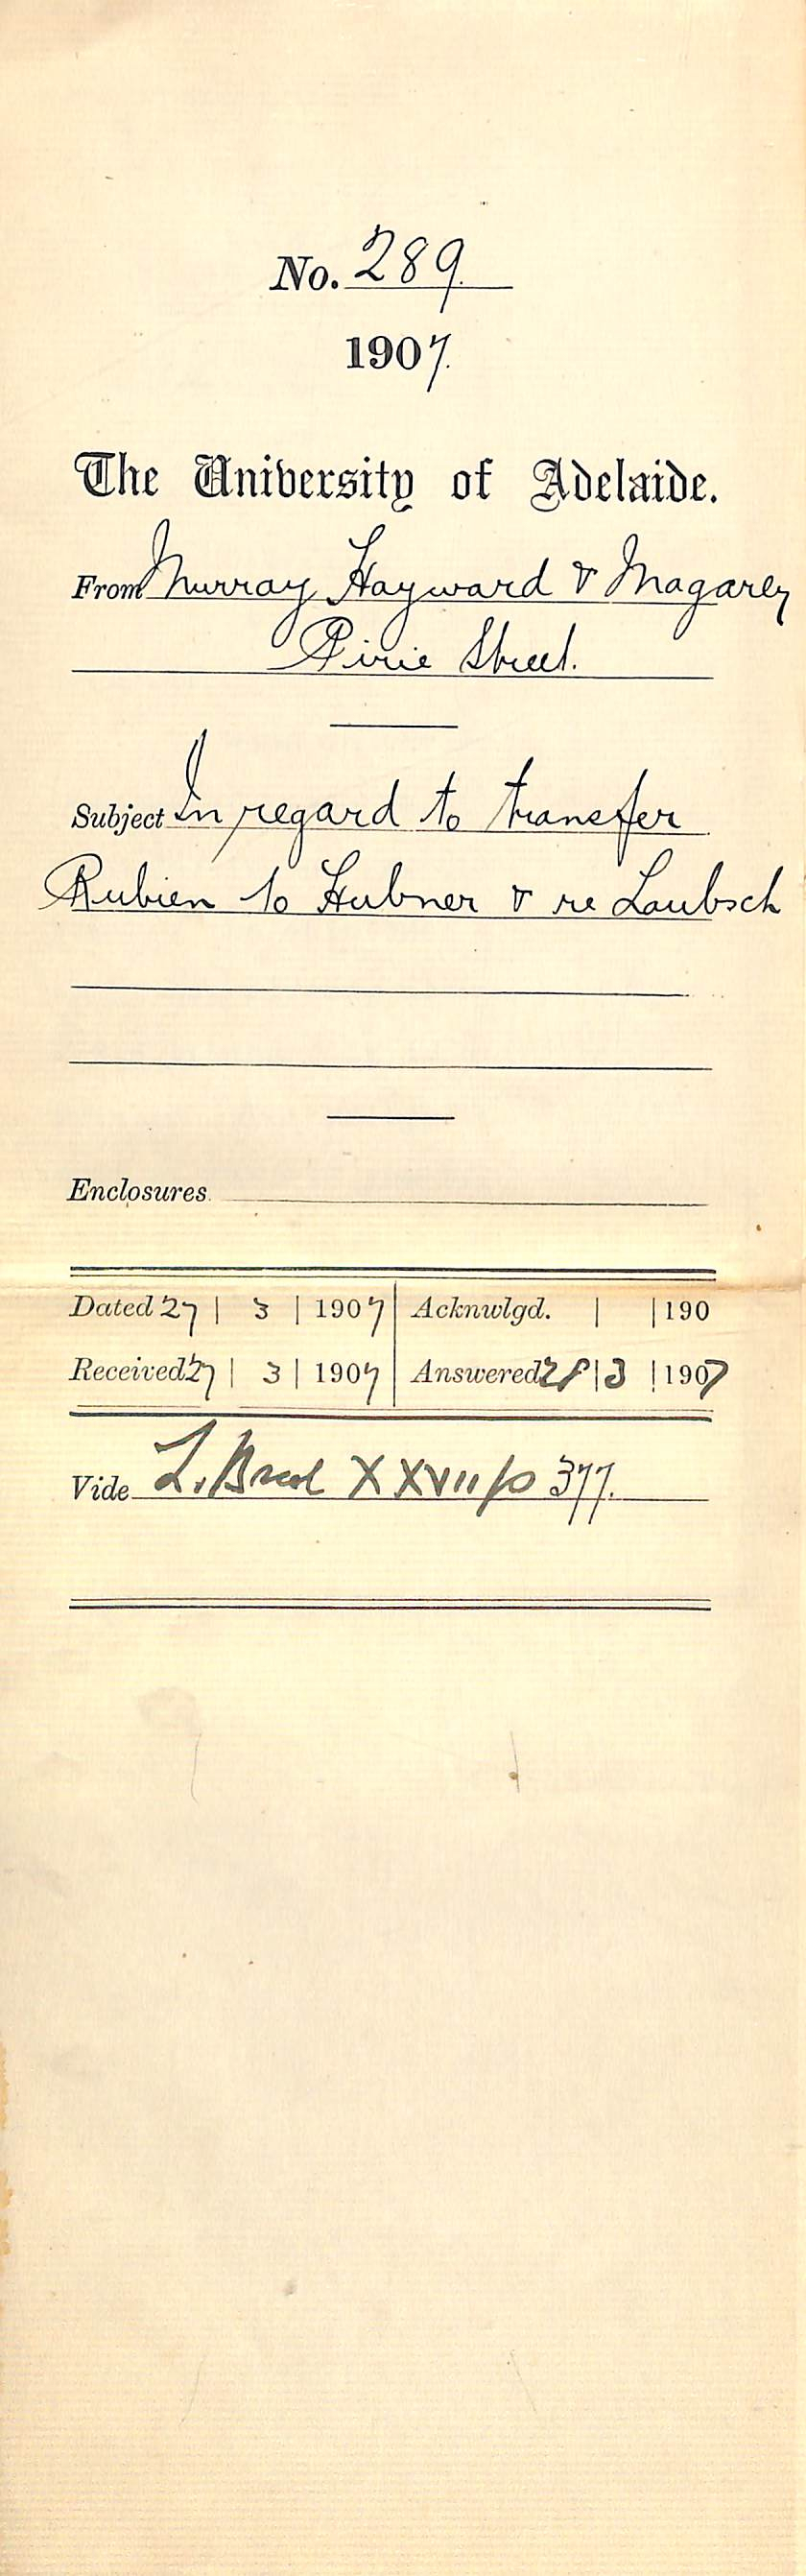 No. 289.
1907.
The University of Adelaide.
From Murray Hayward & Magarey
Pirie Street.
Subject In regard to transfer
Rubien to Hubner & re Laubsch
Enclosures
Dated 27 | 3 | 1907 Acknwlgd. | | 190
Received 27 | 3 | 1907 Answered 28 | 3 | 1907
Vide L. Book XXVII p 377.